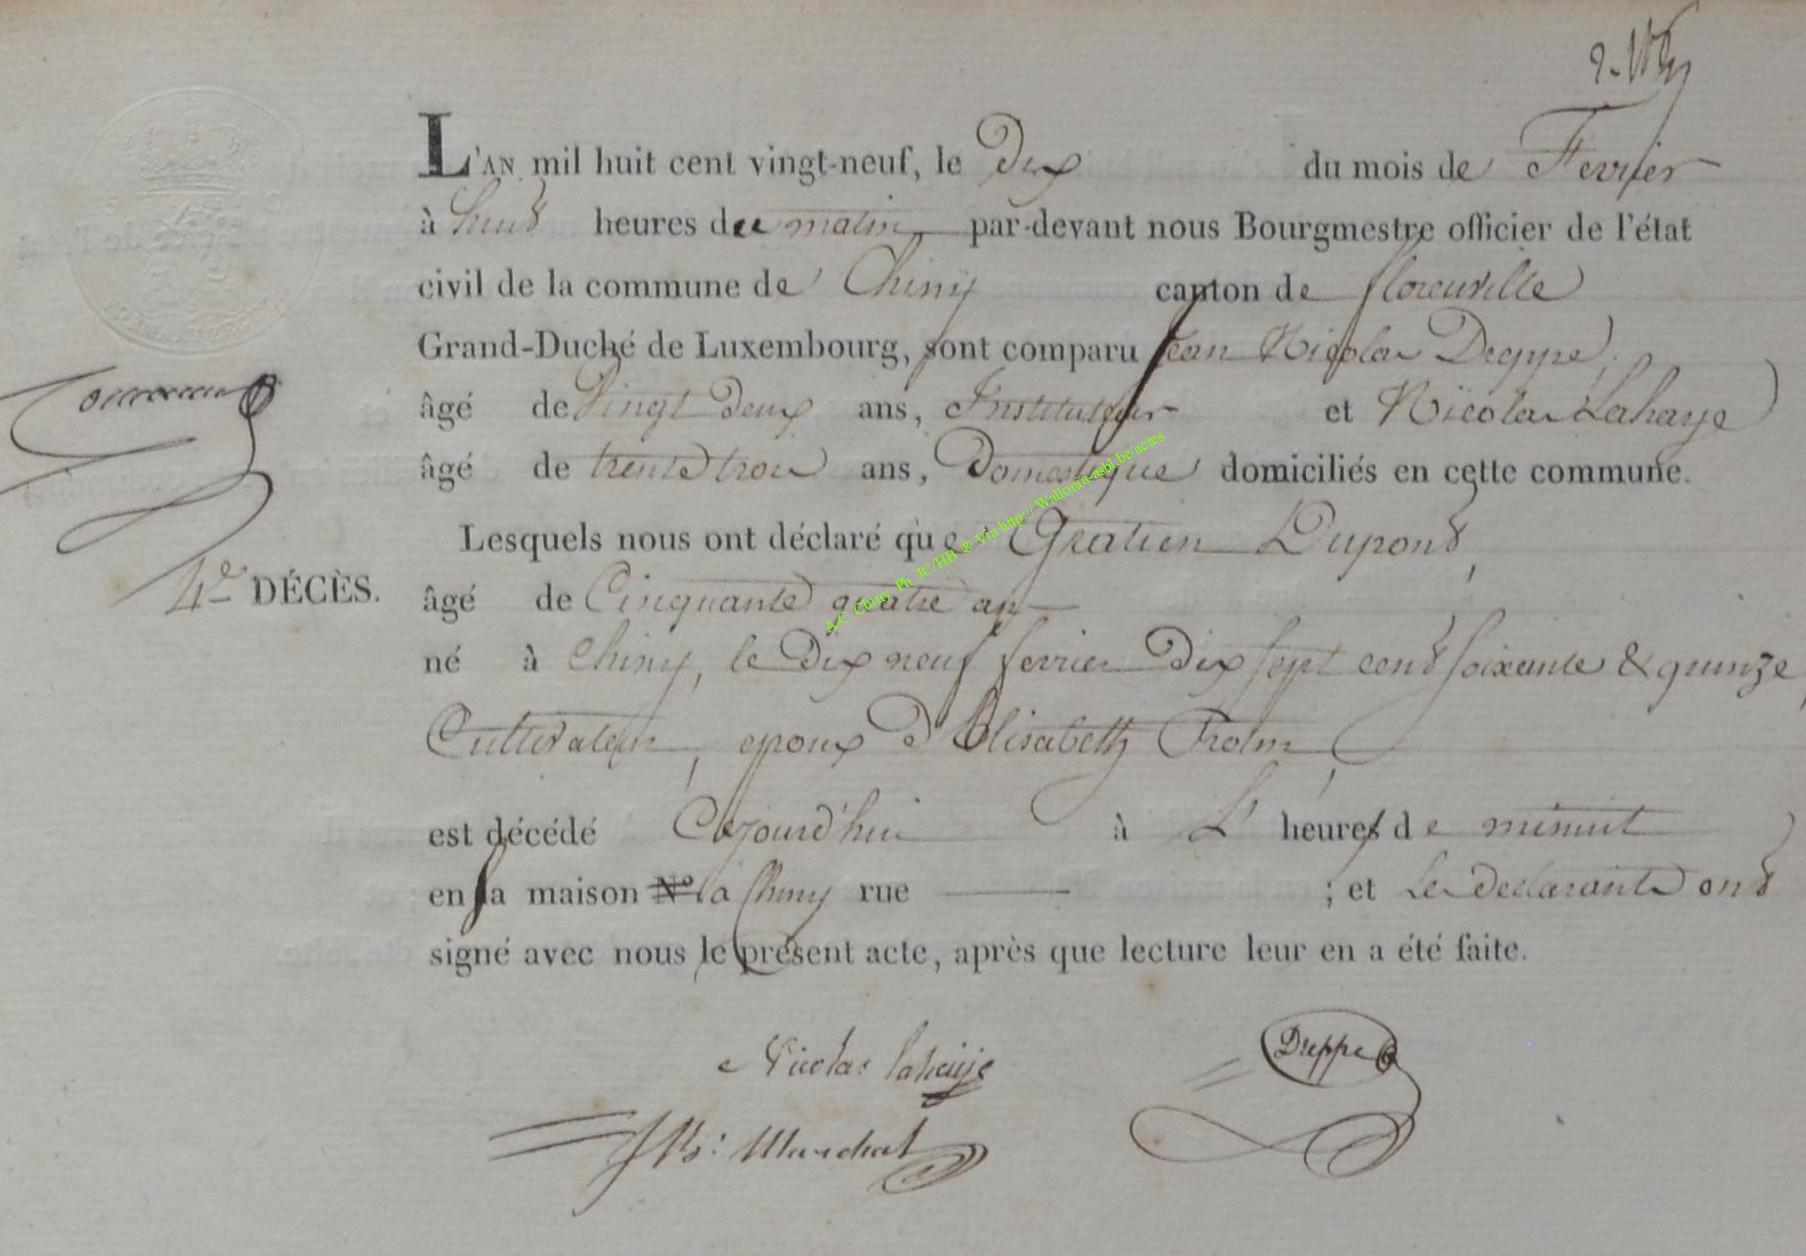 L'AN mil huit cent vingt-neuf, le Dix du mois de Fevrier
à huit heures du matin, par-devant nous Bourgmestre officier de l'état
civil de la commune de Chiny canton de florenville
Grand-Duché de Luxembourg, sont comparu Jean Nicolas Dreppe,
âgé de Vingt deux ans, Instituteur et Nicolas Lahaye
âgé de trente trois ans, Domestique domiciliés en cette commune.
Lesquels nous ont déclaré que Gratien Dupont,
4e DÉCÈS.
âgé de Cinquante quatre ans
né à Chiny, le Dix neuf fevrier Dix sept cent soixante & quinze,
Cultivateur, epoux d'Elisabeth
est décédé Cejourd'hui à L' heure de minuit
en sa maison N° à Chiny rue ; et Les declarants ont
signé avec nous le présent acte, après que lecture leur en a été faite.
Nicolas lahaije
Dreppe
Marechal
A.C. Chiny Ph. JC/HB ® via http://Wallonia-asbl.be/actes